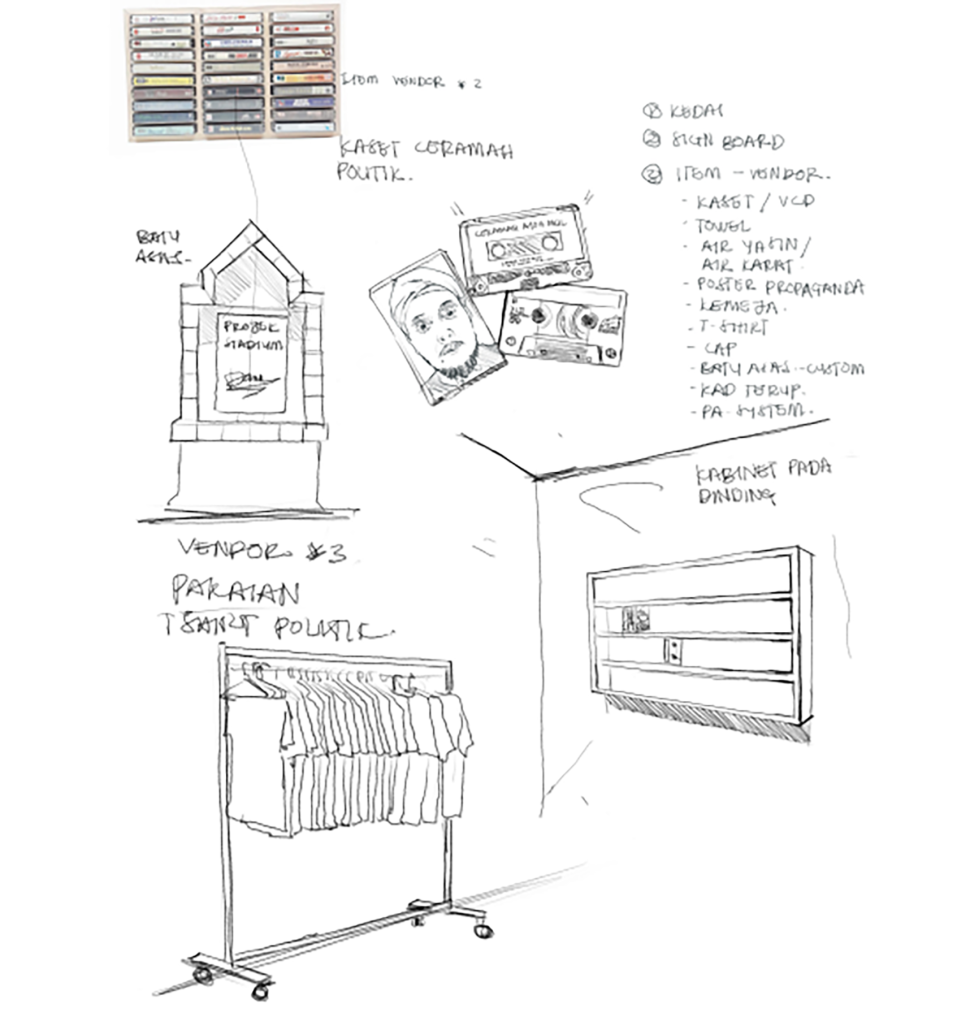 ITEM VENDOR # 2
KASET CERAMAH
POLITIK.
① KEDAI
② SIGN BOARD
② ITEM - VENDOR.
- KASET / VCD
- TOWEL
- AIR YASIN /
AIR KARAT.
- POSTER PROPAGANDA
- KEMEJA.
- T-SHIRT
- CAP
- BATU ASAS - CUSTOM
- KAD TERUP.
- PA SYSTEM.
BATU
ASAS.
PROJEK
STADIUM
CERAMAH
KABINET PADA
DINDING
VENDOR #3
PAKAIAN
TSHIRT POLITIK.